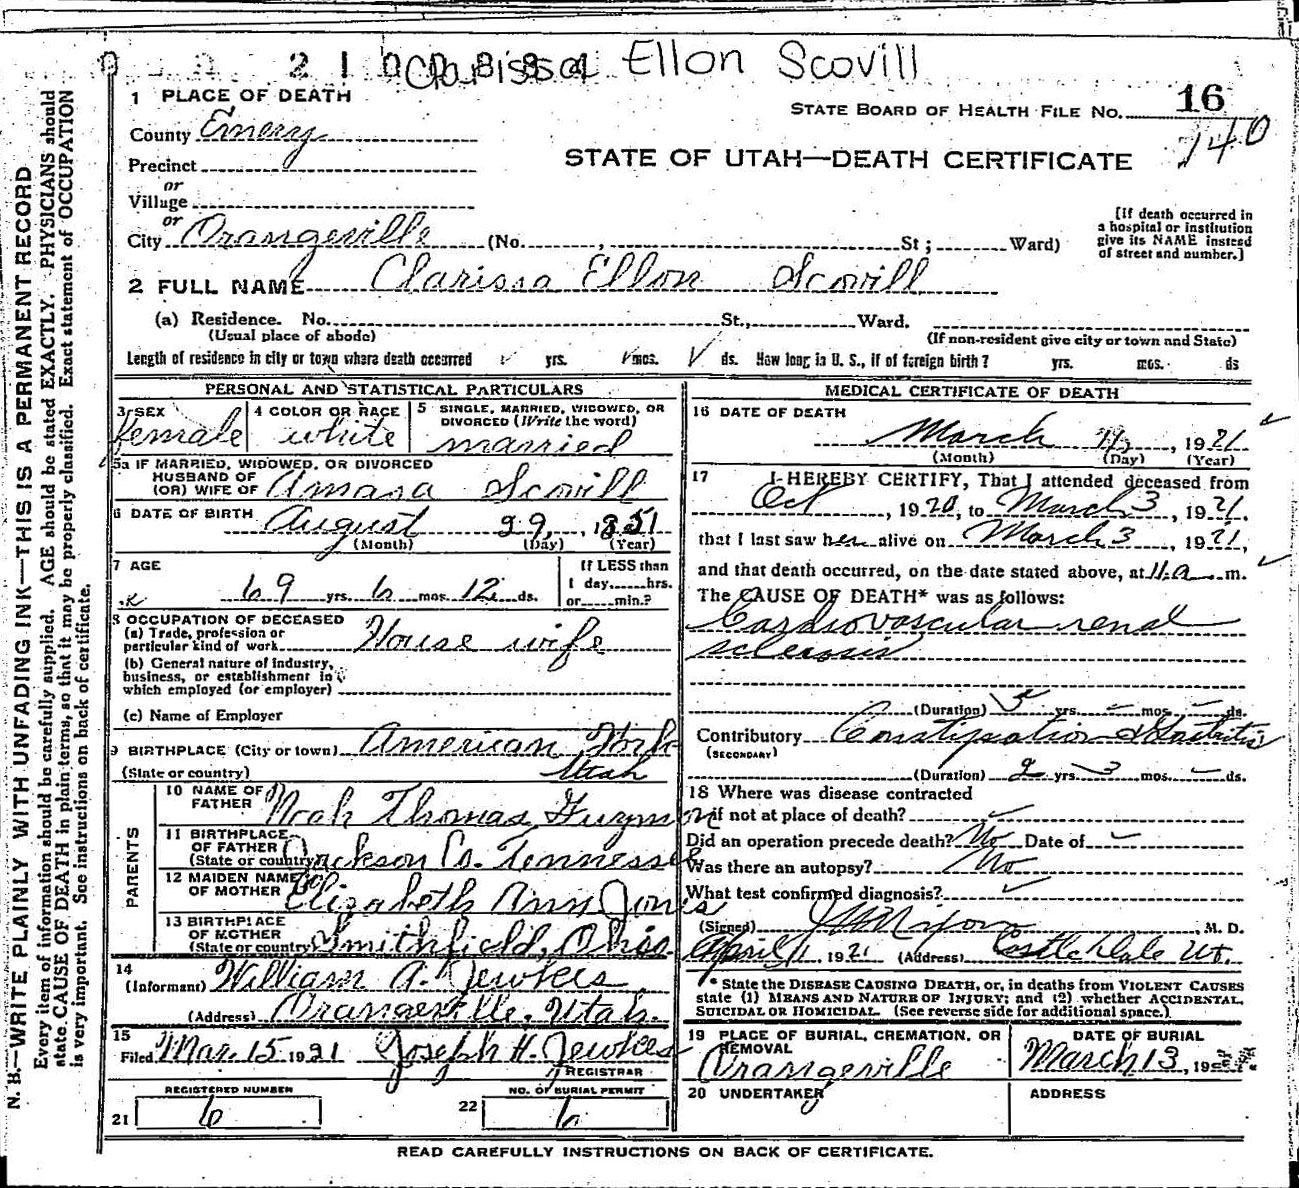 Clarissa Ellon Scovill
1 PLACE OF DEATH
STATE BOARD OF HEALTH FILE NO. 16
County Emery
140
STATE OF UTAH—DEATH CERTIFICATE
Precinct
or
Village
or
City Orangeville (No. , St ; Ward)
[If death occurred in
a hospital or institution
give its NAME instead
of street and number.]
2 FULL NAME Clarissa Ellon Scovill
(a) Residence. No. St., Ward.
(Usual place of abode) (If non-resident give city or town and State)
Length of residence in city or town where death occurred yrs. mos. ds. How long in U. S., if of foreign birth? yrs. mos. ds
PERSONAL AND STATISTICAL PARTICULARS
3 SEX female
4 COLOR OR RACE white
5 SINGLE, MARRIED, WIDOWED, OR
DIVORCED (Write the word)
married
5a IF MARRIED, WIDOWED, OR DIVORCED
HUSBAND OF
(OR) WIFE OF Amasa Scovill
6 DATE OF BIRTH August 29, 1851
(Month) (Day) (Year)
7 AGE
69 yrs. 6 mos. 12 ds.
If LESS than
1 day......hrs.
or......min.?
8 OCCUPATION OF DECEASED
(a) Trade, profession or
particular kind of work House wife
(b) General nature of industry,
business, or establishment in
which employed (or employer)
(c) Name of Employer
9 BIRTHPLACE (City or town) American Fork
(State or country) Utah
PARENTS
10 NAME OF
FATHER Noah Thomas Guymon
11 BIRTHPLACE
OF FATHER
(State or country) Jackson Co. Tennessee
12 MAIDEN NAME
OF MOTHER Elizabeth Ann Jones
13 BIRTHPLACE
OF MOTHER
(State or country) Smithfield, Ohio.
14
(Informant) William A. Jewkes
(Address) Orangeville, Utah.
15
Filed Mar. 15 1921 Joseph H. Jewkes
REGISTRAR
REGISTERED NUMBER
21 6
NO. OF BURIAL PERMIT
22 6
MEDICAL CERTIFICATE OF DEATH
16 DATE OF DEATH
March , 1921
(Month) (Day) (Year)
17 I HEREBY CERTIFY, That I attended deceased from
Oct , 1920, to March 3, 1921.
that I last saw her alive on March 3, 1921,
and that death occurred, on the date stated above, at 11 a m.
The CAUSE OF DEATH* was as follows:
Cardiovascular renal
sclerosis
(Duration) 5 yrs. – mos. – ds.
Contributory Constipation &
(SECONDARY)
(Duration) 2 yrs. 3 mos. – ds.
18 Where was disease contracted
if not at place of death?
Did an operation precede death? No Date of –
Was there an autopsy? No
What test confirmed diagnosis?
(Signed) , M. D.
April 11 1921 (Address) Castle Dale Ut.
* State the DISEASE CAUSING DEATH, or, in deaths from VIOLENT CAUSES
state (1) MEANS AND NATURE OF INJURY; and (2) whether ACCIDENTAL,
SUICIDAL OR HOMICIDAL. (See reverse side for additional space.)
19 PLACE OF BURIAL, CREMATION, OR
REMOVAL
Orangeville
DATE OF BURIAL
March 13, 19
20 UNDERTAKER
ADDRESS
READ CAREFULLY INSTRUCTIONS ON BACK OF CERTIFICATE.
N. B.—WRITE PLAINLY WITH UNFADING INK—THIS IS A PERMANENT RECORD
Every item of information should be carefully supplied. AGE should be stated EXACTLY. PHYSICIANS should
state CAUSE OF DEATH in plain terms, so that it may be properly classified. Exact statement of OCCUPATION
is very important. See instructions on back of certificate.